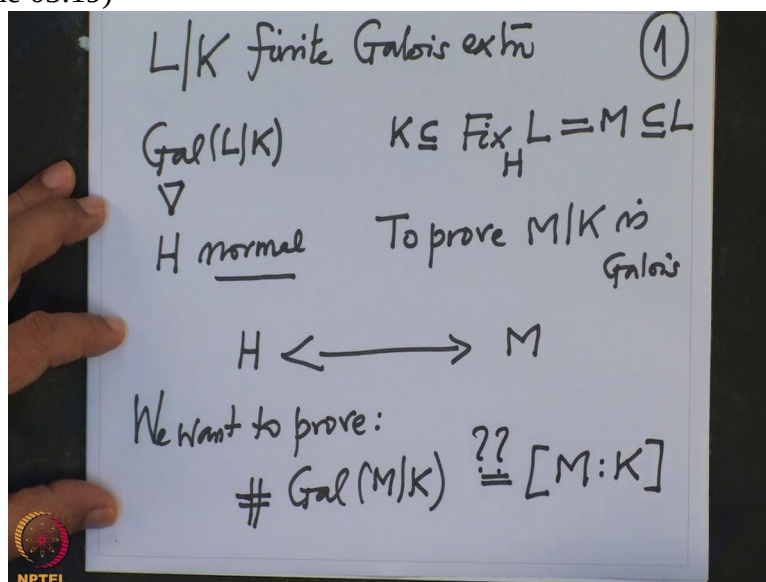 L/K finite Galois extn ①
Gal(L|K) K ⊆ Fix_H L = M ⊆ L
▽
H normal To prove M|K is Galois
H ⟷ M
We want to prove:
# Gal(M|K) ≟?? [M:K]
NPTEL